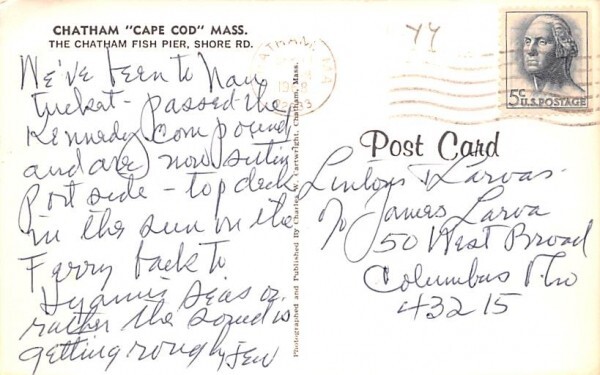 CHATHAM "CAPE COD" MASS.
THE CHATHAM FISH PIER, SHORE RD.
We've been to Nan
tucket - passed the
Kennedy Compound
and are now sitting
Port side - top deck
in the sun on the
Ferry back to
Hyannis seas or
rather the sound is
getting rough
Photographed and Published By Charles W. Cartwright, Chatham, Mass.
5¢ U.S. POSTAGE
Post Card
Lintons & Larvas
% James Larva
50 West Broad
Columbus Ohio
43215